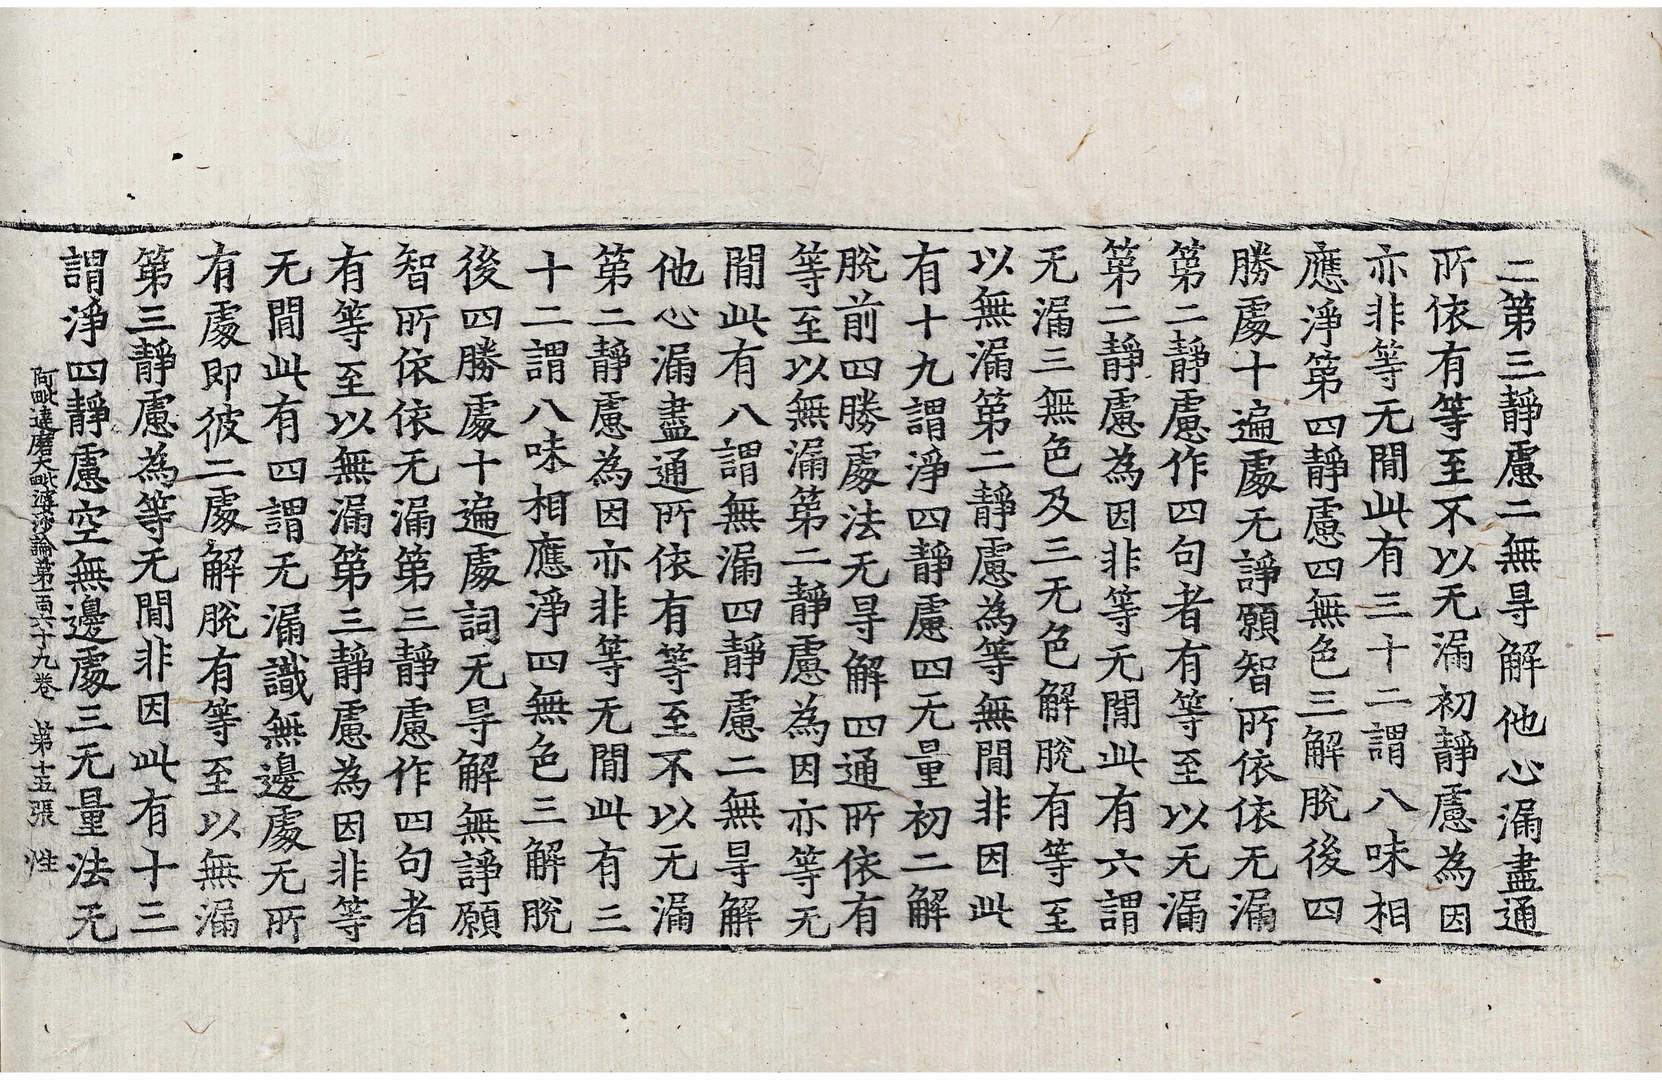 二第三靜慮二無㝵解他心漏盡通
所依有等至不以无漏初靜慮為因
亦非等无間此有三十二謂八味相
應淨第四靜慮四無色三解脫後四
勝處十遍處无諍願智所依依无漏
第二靜慮作四句者有等至以无漏
第二靜慮為因非等无間此有六謂
无漏三無色及三无色解脫有等至
以無漏第二靜慮為等無間非因此
有十九謂淨四靜慮四无量初二解
脫前四勝處法无㝵解四通所依有
等至以無漏第二靜慮為因亦等无
間此有八謂無漏四靜慮二無㝵解
他心漏盡通所依有等至不以无漏
第二靜慮為因亦非等无間此有三
十二謂八味相應淨四無色三解脫
後四勝處十遍處詞无㝵解無諍願
智所依依无漏第三靜慮作四句者
有等至以無漏第三靜慮為因非等
无間此有四謂无漏識無邊處无所
有處即彼二處解脫有等至以無漏
第三靜慮為等无間非因此有十三
謂淨四靜慮空無邊處三无量法无
阿毗達磨大毗婆沙論第一百六十九卷　第十五張　性